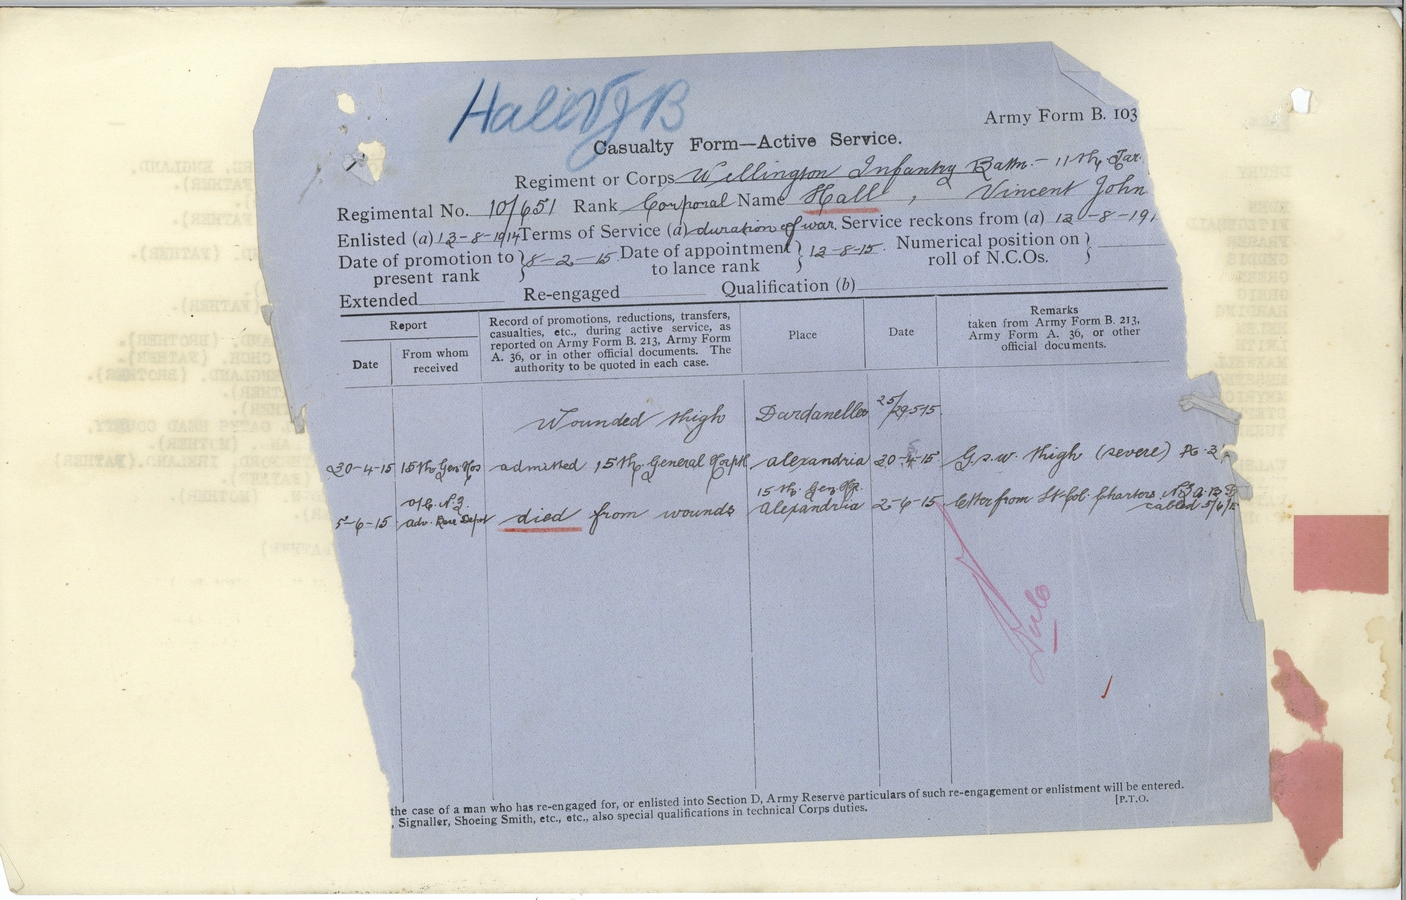 Hall VJ B
Army Form B. 103
Casualty Form—Active Service.
Regiment or Corps Wellington Infantry Battn. - 11th Tar.
Regimental No. 10/651 Rank Corporal Name Hall, Vincent John
Enlisted (a) 12-8-1914 Terms of Service (a) duration of war. Service reckons from (a) 12-8-191
Date of promotion to present rank } 8-2-15 Date of appointment to lance rank } 12-8-15. Numerical position on roll of N.C.Os. }
Extended Re-engaged Qualification (b)
Report
Date
From whom received
Record of promotions, reductions, transfers,
casualties, etc., during active service, as
reported on Army Form B. 213, Army Form
A. 36, or in other official documents. The
authority to be quoted in each case.
Place
Date
Remarks
taken from Army Form B. 213,
Army Form A. 36, or other
official documents.
Wounded thigh Dardanelles 25/29-5-15
30-4-15 15th Gen Hos admitted 15th General Hospth Alexandria 30-4-15 G.S.W. thigh (severe)
5-6-15 adv. Base Depot died from wounds 15th Gen Hos. Alexandria 2-6-15 letter from Lt. Col. Charters cabled 5/6/15
the case of a man who has re-engaged for, or enlisted into Section D, Army Reserve particulars of such re-engagement or enlistment will be entered.
, Signaller, Shoeing Smith, etc., etc., also special qualifications in technical Corps duties.
[P.T.O.